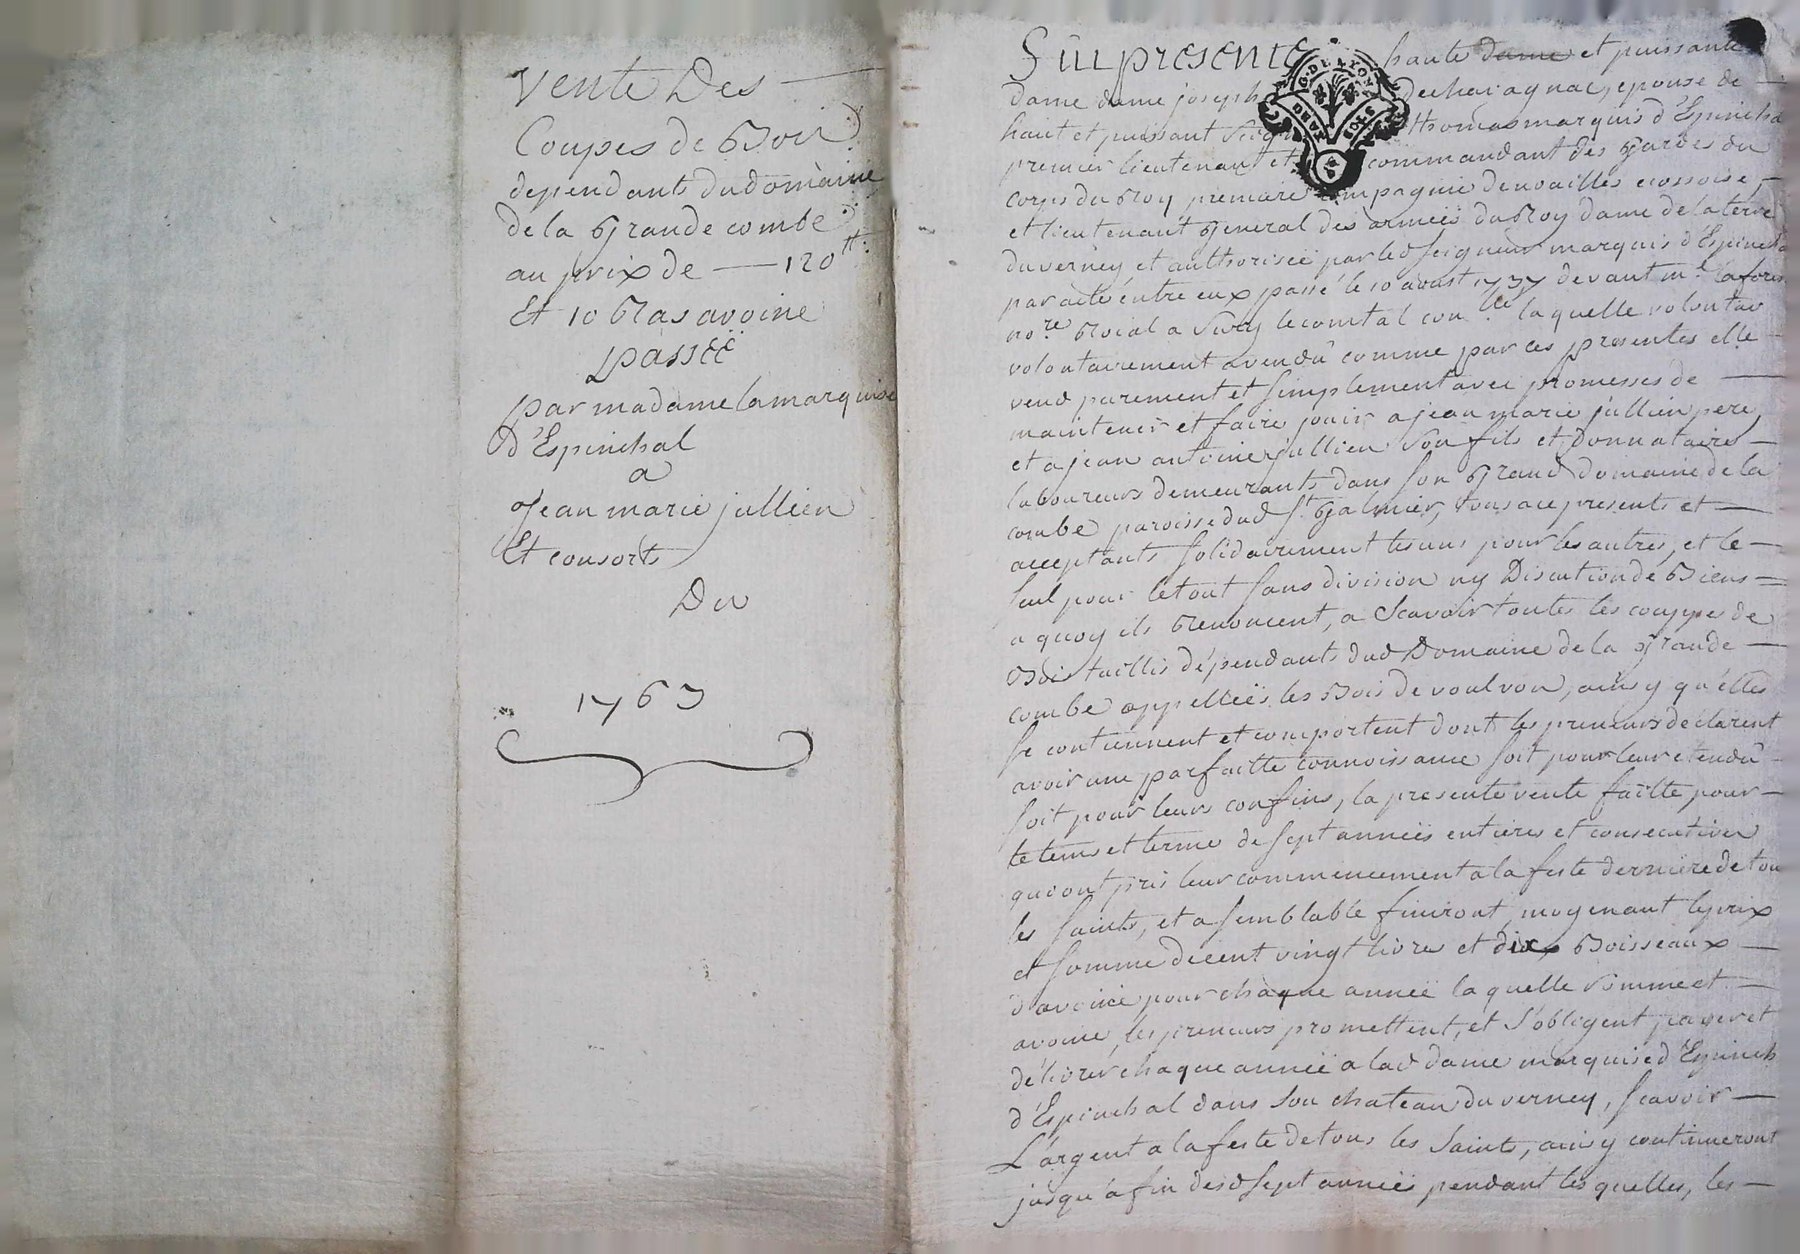 Vente Des
Coupes de Bois
dependants du domaine
de la Grande combe
au prix de — 120 tt:
Et 10 Ras avoine
passéé
par madame la marquise
d'Espinchal
a
Jean marie jullien
Et consorts
Du
1763
G. DE LYON
Fûu presente haute dame et puissante
Dame dame joseph de chavagnac, epouse de
haut et puissant Seign thomas marquis d'Espincha
premier lieutenant et commandant des gardes du
corps du Roy premiere compagnie de noailles ecossoise,
et lieutenant General des armeés du Roy dame de la terre
du verney, et authorisée par led seigneur marquis d'Espincha
par acte entre eux passé le 10 aoust 1737 devant me. Lafores
nore. Roial a Vic le comtal con la quelle volontav
volontairement a vendû comme par ces presentes elle
vend purement et simplement avec promesses de
maintenir et faire jouir a jean marie jullien pere,
et a jean antoine jullien son fils et donnataire
laboureurs demeurants dans son Grand Domaine de la
combe paroisse dud St Galmier, tous ace presents et
acceptants solidairement les uns pour les autres, et le
seul pour le tout sans division ny Discution de Biens
a quoy ils Renoncent, a Scavoir toutes les couppes de
Bois taillis dépendants dud Domaine de la Grande
combe appelleés les Bois de voulvon, ainsy qu'elles
se contiennent et comportent dont les preneurs declarent
avoir une parfaitte connoissance soit pour leur etendû
soit pour leurs confins, la presente vente faitte pour
le tems et terme de sept anneés entieres et consecutives
qui ont pris leur commencement a la feste derniere de tou
les saints, et a semblable finiront, moyenant le prix
et somme de cent vingt livres et dix Boisseaux
d'avoine, pour chaque anneé la quelle somme et
avoine, les preneurs promettent, et s'obligent payer et
délivrer chaque anneé a lad dame marquise d'Espinch
d'Espinchal dans son chateau du verney, scavoir
L'argent a la feste de tous les Saints, ainsy continueront
jusqu'a fin desd sept anneés pendant les quelles, les